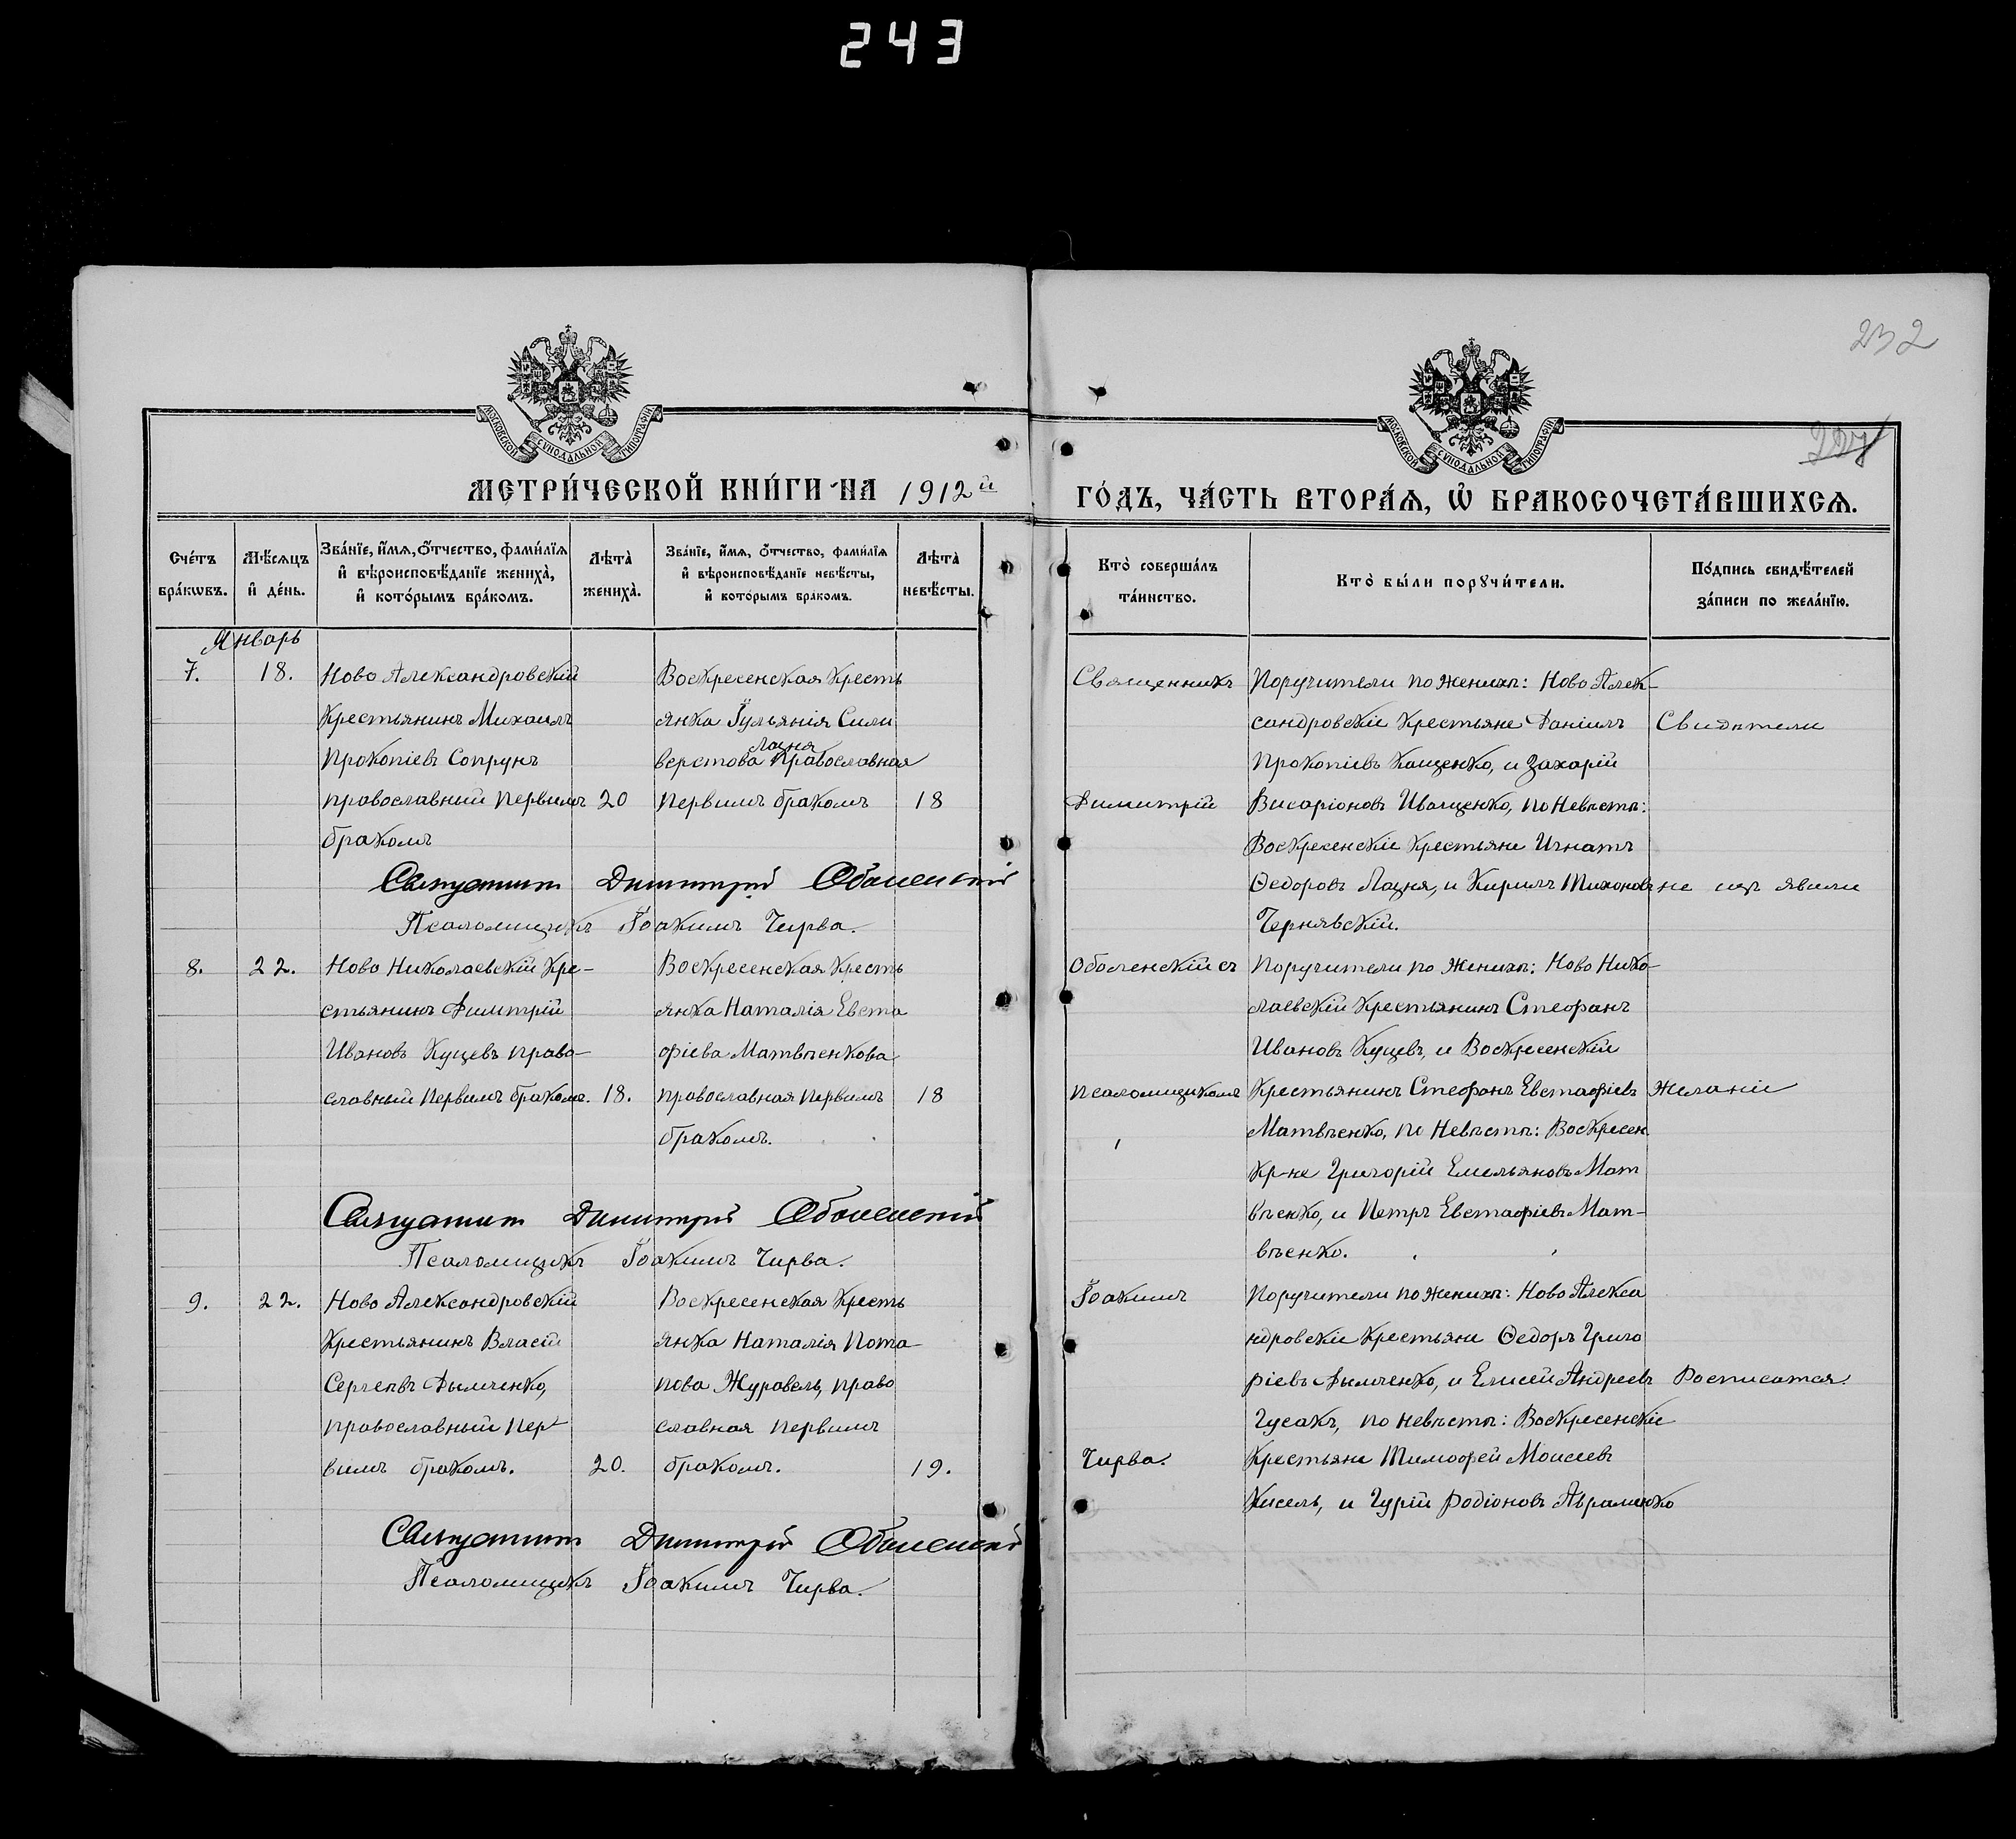 243
232
МОСКОВСКОЙ СѴНОДАЛЬНОЙ ТИПОГРАФІИ
МОСКОВСКОЙ СѴНОДАЛЬНОЙ ТИПОГРАФІИ
МЕТРИ́ЧЕСКОЙ КНИ́ГИ НА 1912й
ГО́ДЪ, ЧА́СТЬ ВТОРА́Ѧ, Ѡ҆ БРАКОСОЧЕТА́ВШИХСѦ.
Сче́тъ бра́кѡвъ.
Мѣ́сѧцъ и҆ де́нь.
Зва́нїе, и҆́мѧ, ѻ҆́тчество, фами́лїѧ
и҆ вѣроисповѣ́данїе жениха̀,
и҆ кото́рымъ бра́комъ.
Лѣ́та жениха̀.
Зва́нїе, и҆́мѧ, ѻ҆́тчество, фами́лїѧ
и҆ вѣроисповѣ́данїе невѣ́сты,
и҆ кото́рымъ бра́комъ.
Лѣ́та невѣ́сты.
Кто̀ соверша́лъ
та́инство.
Кто̀ бы́ли порꙋчи́тели.
По́дпись свидѣ́телей
за́писи по жела́нїю.
Январь
7.
18.
Ново Александровскій
Крестьянинъ Михаилъ
Прокопіевъ Сопрунъ
православный первымъ
бракомъ
20
Воскресенская Кресть
янка Іульянія Сили
Лазня
верстова Православная
первымъ бракомъ
18
Священникъ
Димитрій
Поручители по женихѣ: Ново Алек-
сандровскіе Крестьяне Даніилъ
Прокопіевъ Кащенко, и Захарій
Висаріоновъ Иващенко, по Невѣстѣ:
Воскресенскіе Крестьяне Игнатъ
Ѳедоровъ Лазня, и Кирилъ Тихоновъ
Чернявскій.
Свидѣтели
не изъ явили
Священникъ Димитрій Оболенскій
Псаломщикъ Іоакимъ Чирва.
8.
22.
Ново Николаевскій Кре-
стьянинъ Димтрій
Ивановъ Куцевъ право-
славный первымъ бракомъ.
18.
Воскресенская Кресть
янка Наталія Евста
фіева Матвѣенкова
православная первымъ
бракомъ.
18
Оболенскій съ
псаломщикомъ
Поручители по Женихѣ: Ново Нико-
лаевскій Крестьянинъ Стефанъ
Ивановъ Куцевъ, и Воскресенскій
Крестьянинъ Стефанъ Евстафіевъ
Матвѣенко, по Невѣстѣ: Воскресен.
Кр-не Григорій Емельяновъ Мат
вѣенко, и Петръ Евстафіевъ Мат-
вѣенко.
Желаніе
Священникъ Димитрій Оболенскій
Псаломщикъ Іоакимъ Чирва.
9.
22.
Ново Александровскій
Крестьянинъ Власій
Сергѣевъ Дымченко,
православный пер
вымъ бракомъ.
20.
Воскресенская Кресть
янка Наталія Пота
пова Журавель, право
славная первымъ
бракомъ.
19.
Іоакимъ
Чирва.
Поручители по женихѣ: Ново Алекса
ндровскіе Крестьяне Ѳедоръ Григо
ріевъ Дымченко, и Елисей Андреевъ
Гусакъ, по невѣстѣ: Воскресенскіе
Крестьяне Тимофей Моисеевъ
Кисель, и Гурій Родіоновъ Авраменко
Росписатся.
Священникъ Димитрій Оболенскій
Псаломщикъ Іоакимъ Чирва.